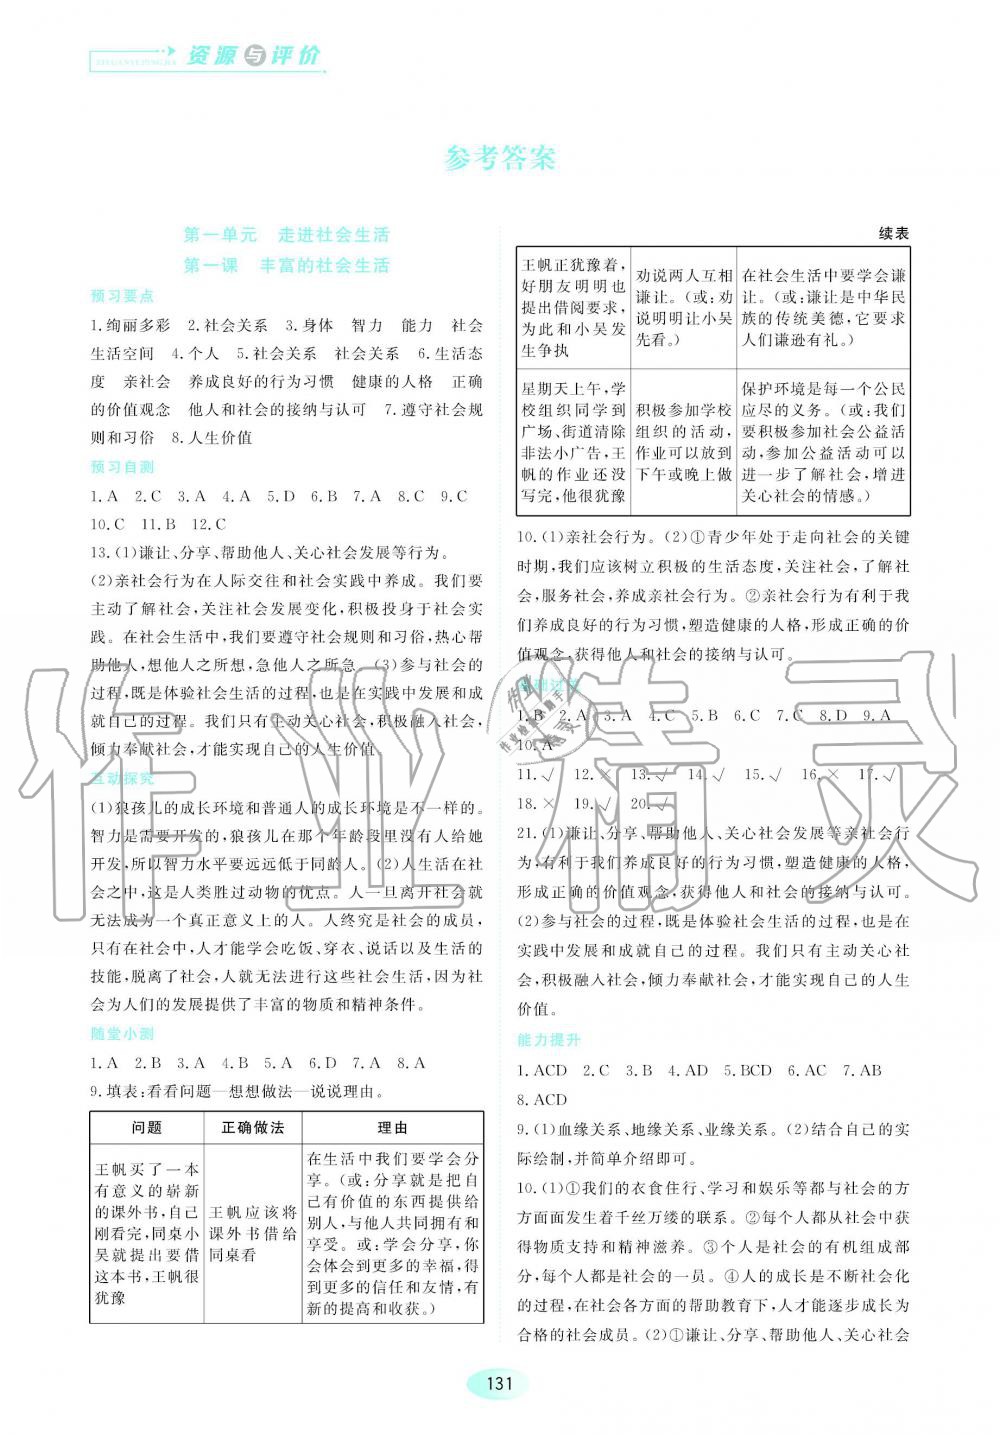 ZIYUANYUPINGJIA
资源与评价
参考答案
第一单元 走进社会生活
第一课 丰富的社会生活
预习要点
1.绚丽多彩 2.社会关系 3.身体 智力 能力 社会
生活空间 4.个人 5.社会关系 社会关系 6.生活态
度 亲社会 养成良好的行为习惯 健康的人格 正确
的价值观念 他人和社会的接纳与认可 7.遵守社会规
则和习俗 8.人生价值
预习自测
1.A 2.C 3.A 4.A 5.D 6.B 7.A 8.C 9.C
10.C 11.B 12.C
13.(1)谦让、分享、帮助他人、关心社会发展等行为。
(2)亲社会行为在人际交往和社会实践中养成。我们要
主动了解社会,关注社会发展变化,积极投身于社会实
践。在社会生活中,我们要遵守社会规则和习俗,热心帮
助他人,想他人之所想,急他人之所急。(3)参与社会的
过程,既是体验社会生活的过程,也是在实践中发展和成
就自己的过程。我们只有主动关心社会,积极融入社会,
倾力奉献社会,才能实现自己的人生价值。
互动探究
(1)狼孩儿的成长环境和普通人的成长环境是不一样的。
智力是需要开发的,狼孩儿在那个年龄段里没有人给她
开发,所以智力水平要远远低于同龄人。(2)人生活在社
会之中,这是人类胜过动物的优点。人一旦离开社会就
无法成为一个真正意义上的人。人终究是社会的成员,
只有在社会中,人才能学会吃饭、穿衣、说话以及生活的
技能,脱离了社会,人就无法进行这些社会生活,因为社
会为人们的发展提供了丰富的物质和精神条件。
随堂小测
1.A 2.B 3.A 4.B 5.A 6.D 7.A 8.A
9.填表:看看问题—想想做法—说说理由。
问题 正确做法 理由
王帆买了一本
有意义的崭新
的课外书,自己
刚看完,同桌小
吴就提出要借
这本书,王帆很
犹豫
王帆应该将
课外书借给
同桌看
在生活中我们要学会分
享。(或:分享就是把自
己有价值的东西提供给
别人,与他人共同拥有和
享受。或:学会分享,你
会体会到更多的幸福,得
到更多的信任和友情,有
新的提高和收获。)
续表
王帆正犹豫着,
好朋友明明也
提出借阅要求,
为此和小吴发
生争执
劝说两人互相
谦让。(或:劝
说明明让小吴
先看。)
在社会生活中要学会谦
让。(或:谦让是中华民
族的传统美德,它要求
人们谦逊有礼。)
星期天上午,学
校组织同学到
广场、街道清除
非法小广告,王
帆的作业还没
写完,他很犹豫
积极参加学校
组织的活动,
作业可以放到
下午或晚上做
保护环境是每一个公民
应尽的义务。(或:我们
要积极参加社会公益活
动,参加公益活动可以
进一步了解社会,增进
关心社会的情感。)
10.(1)亲社会行为。(2)①青少年处于走向社会的关键
时期,我们应该树立积极的生活态度,关注社会,了解社
会,服务社会,养成亲社会行为。②亲社会行为有利于我
们养成良好的行为习惯,塑造健康的人格,形成正确的价
值观念,获得他人和社会的接纳与认可。
基础过关
1.B 2.A 3.A 4.C 5.B 6.C 7.C 8.D 9.A
10.A
11.√ 12.× 13.√ 14.√ 15.√ 16.× 17.√
18.× 19.√ 20.√
21.(1)谦让、分享、帮助他人、关心社会发展等亲社会行
为,有利于我们养成良好的行为习惯,塑造健康的人格,
形成正确的价值观念,获得他人和社会的接纳与认可。
(2)参与社会的过程,既是体验社会生活的过程,也是在
实践中发展和成就自己的过程。我们只有主动关心社
会,积极融入社会,倾力奉献社会,才能实现自己的人生
价值。
能力提升
1.ACD 2.C 3.B 4.AD 5.BCD 6.AC 7.AB
8.ACD
9.(1)血缘关系、地缘关系、业缘关系。(2)结合自己的实
际绘制,并简单介绍即可。
10.(1)①我们的衣食住行、学习和娱乐等都与社会的方
方面面发生着千丝万缕的联系。②每个人都从社会中获
得物质支持和精神滋养。③个人是社会的有机组成部
分,每个人都是社会的一员。④人的成长是不断社会化
的过程,在社会各方面的帮助教育下,人才能逐步成长为
合格的社会成员。(2)①谦让、分享、帮助他人、关心社会
131
作业精灵